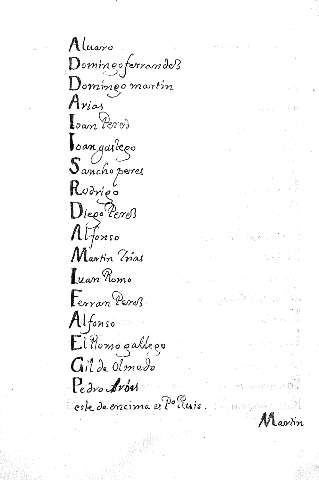 Aluaro
Domingo ferrandez
Domingo martin
Arias
Ioan Perez
Ioan gallego
Sancho peres
Rodrigo
Diego Perez
Alfonso
Martin Arias
Iuan Romo
Ferran Perez
Alfonso
El Romo gallego
Gil de Olmedo
Pedro Arias
este de encima es Pº Ruis.
Martin